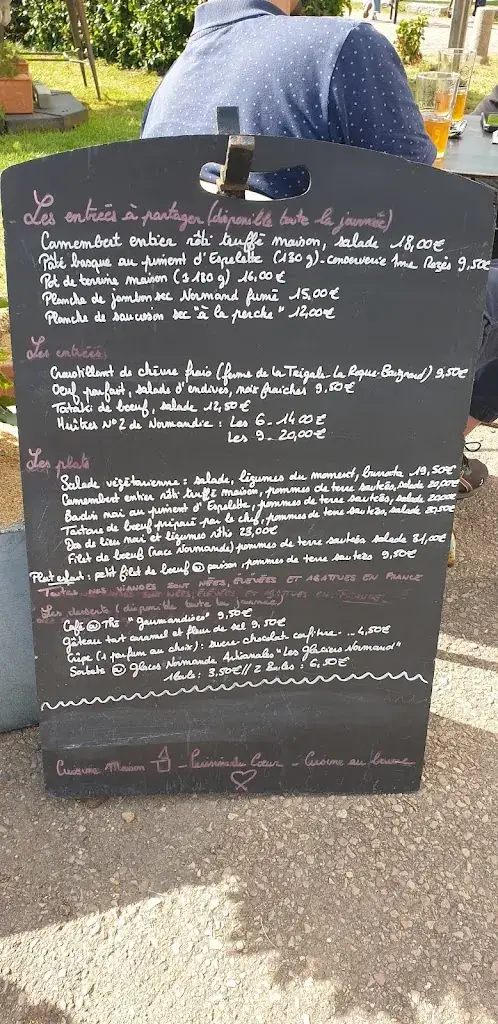 Les entrées à partager (disponible toute la journée)
Camembert entier rôti truffé maison, salade 18,00€
Pâté basque au piment d'Espelette (130 g) - conserverie 9,50€
Pot de terrine maison (± 180 g) 16,00€
Planche de jambon sec Normand fumé 15,00€
Planche de saucisson sec "à la perche" 12,00€
Les entrées
Croustillant de chèvre frais (ferme de la Roque-Baignard) 9,50€
Oeuf parfait, salade d'endives, noix fraîches 9,50€
Tataki de boeuf, salade 12,50€
Huîtres N°2 de Normandie : Les 6 - 14,00€
Les 9 - 20,00€
Les plats
Salade végétarienne : salade, légumes du moment, burrata 19,50€
Camembert entier rôti truffé maison, pommes de terre sautées, salade 20,00€
Boudin noir au piment d'Espelette, pommes de terre sautées, salade 20,00€
Tartare de boeuf préparé par le chef, pommes de terre sautées, salade
Dos de lieu noir et légumes rôtis 23,00€
Filet de boeuf (race Normande) pommes de terre sautées salade 31,00€
Plat enfant : petit filet de boeuf @ poisson, pommes de terre sautées 9,50€
Toutes nos viandes sont nées, élevées et abattues en France
Les desserts (disponible toute la journée)
Café @ Thé "gourmandises" 9,50€
Gâteau tout caramel et fleur de sel 9,50€
Crêpe (1 parfum au choix) : sucre chocolat confiture ... 4,50€
Sorbets @ glaces Normande Artisanales "Les Glaciers Normand"
1 Boule : 3,50€ // 2 Boules : 6,50€
Cuisine Maison - Cuisine du Coeur - Cuisine au Beurre